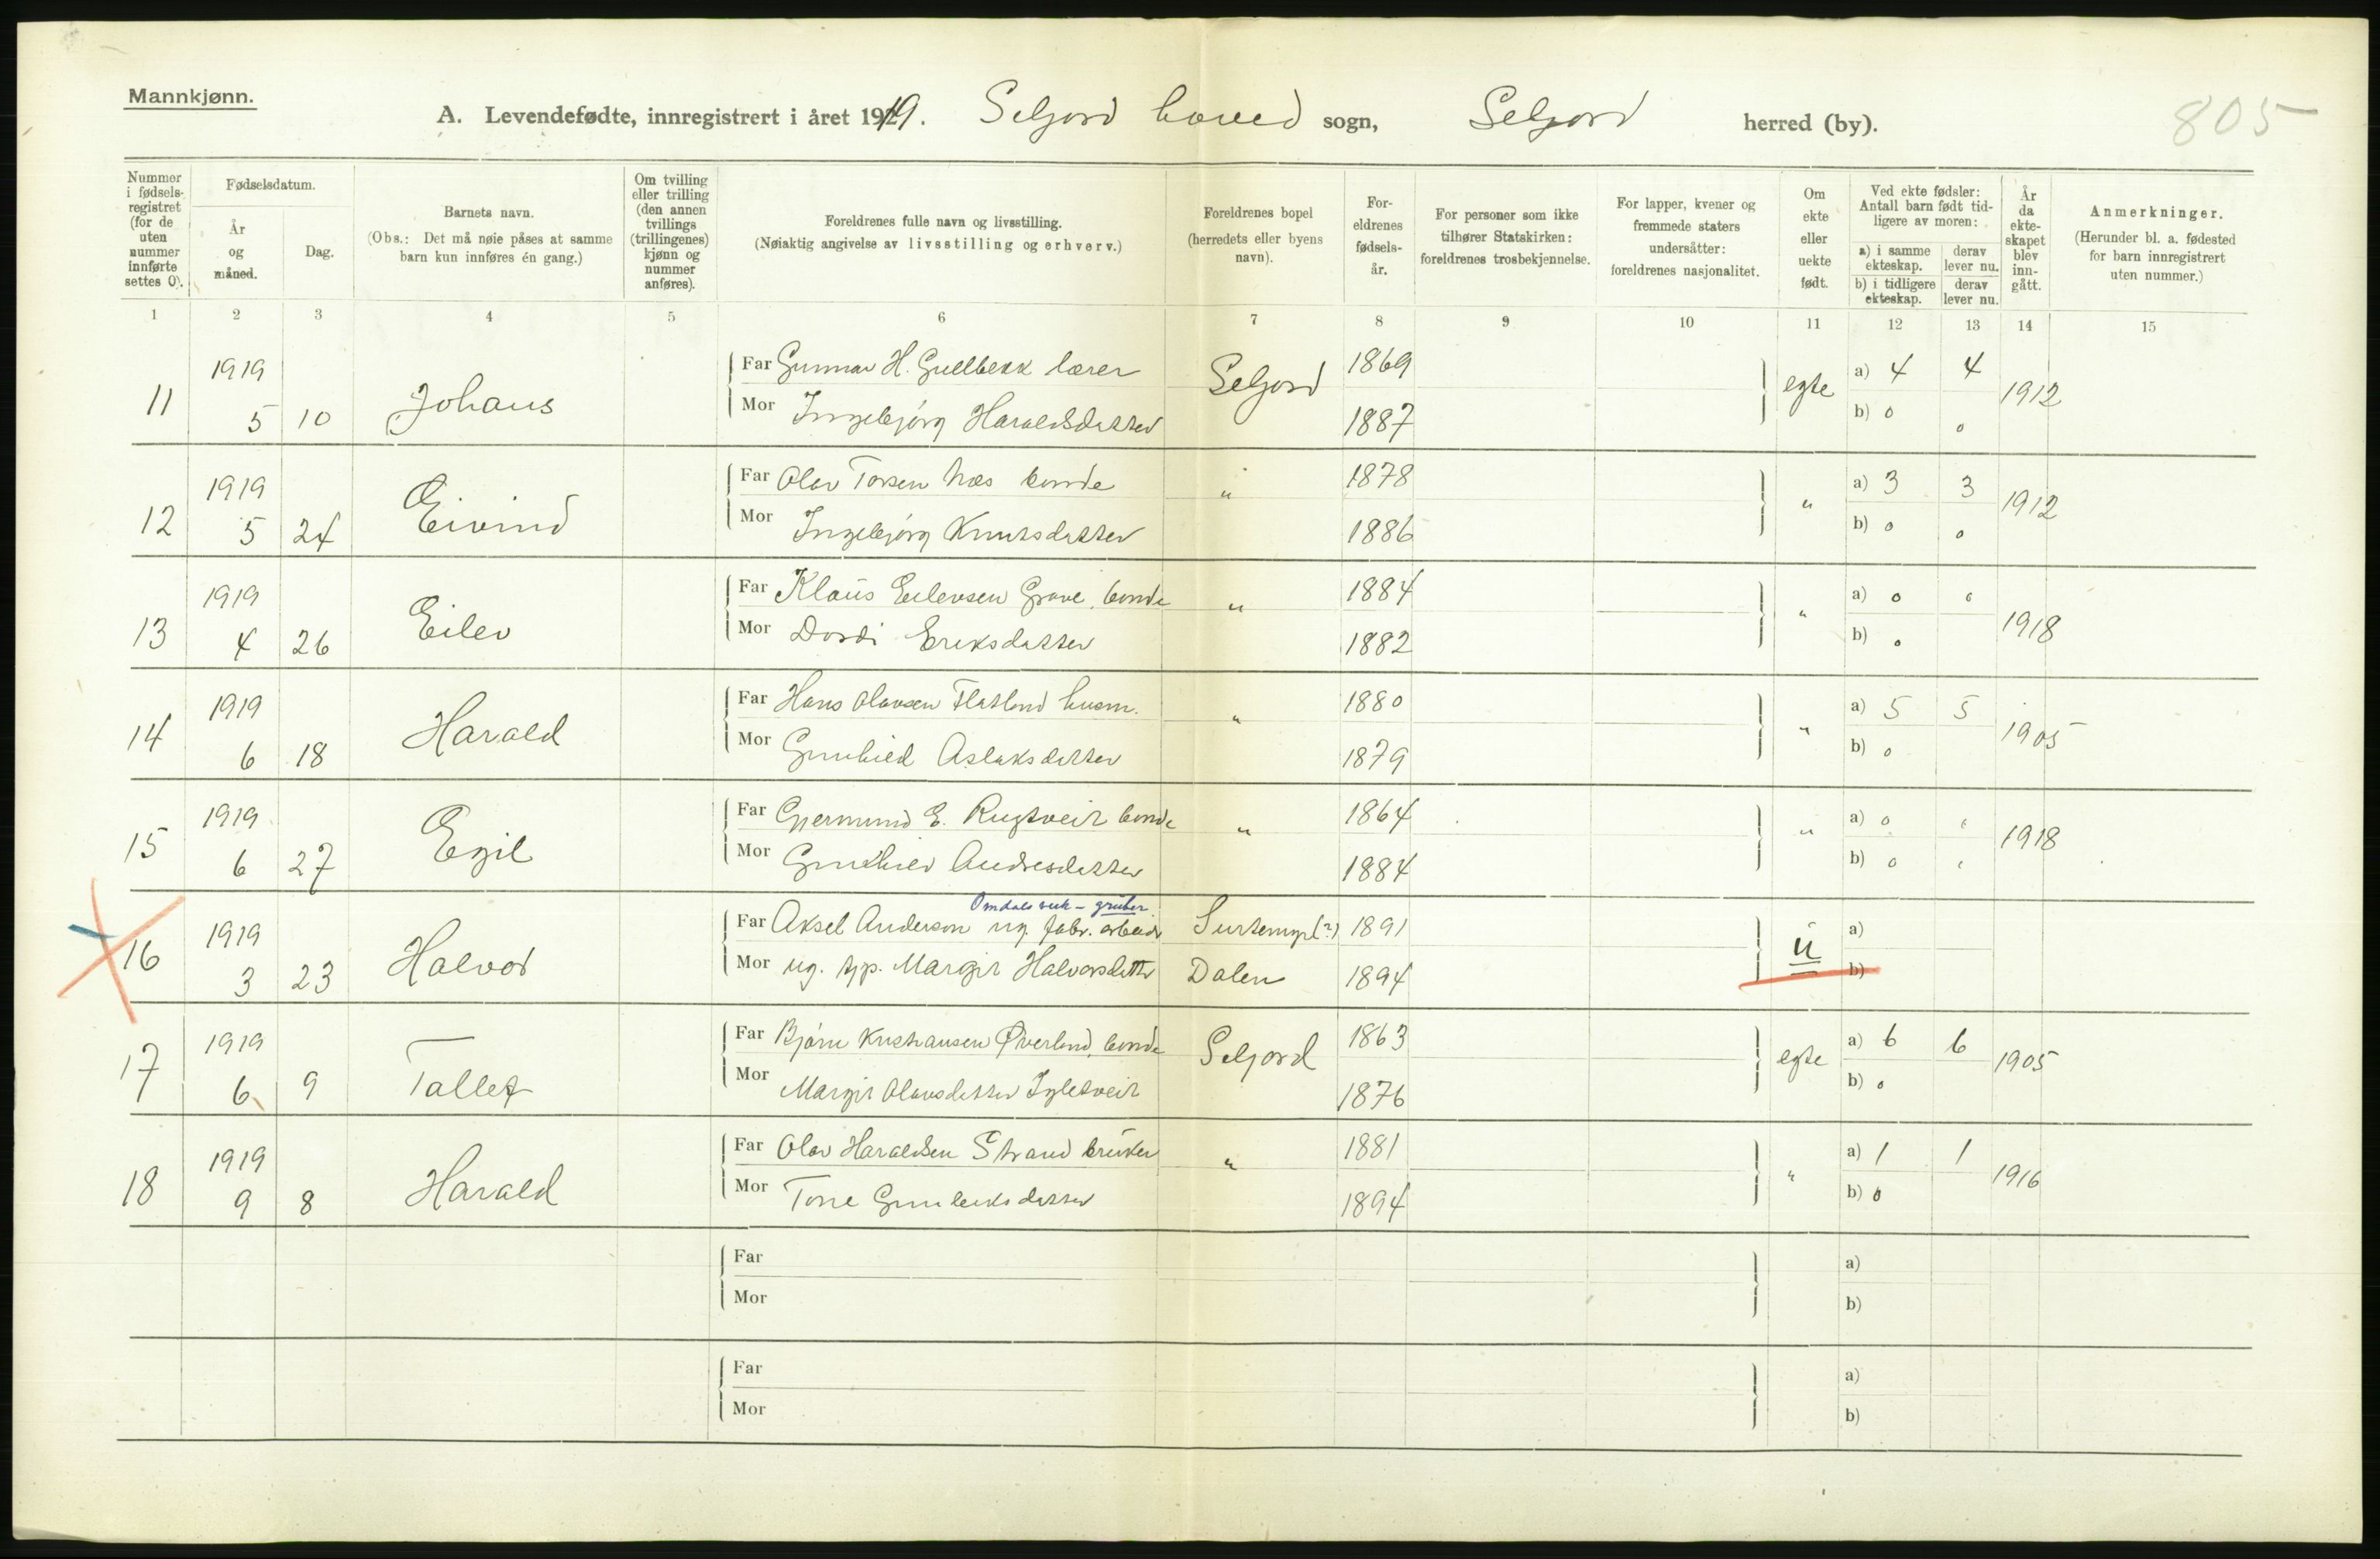 Mannkjønn.
A. Levendefødte, innregistrert i året 1919. Seljord hoved sogn, Seljord herred (by).
805
Nummer i fødsels-registret (for de uten nummer innførte settes 0).
Fødselsdatum.
År og måned.
Dag.
Barnets navn.
(Obs.: Det må nøie påses at samme barn kun innføres én gang.)
Om tvilling eller trilling (den annen tvillings (trillingenes) kjønn og nummer anføres).
Foreldrenes fulle navn og livsstilling.
(Nøiaktig angivelse av livsstilling og erhverv.)
Foreldrenes bopel (herredets eller byens navn).
For-eldrenes fødsels-år.
For personer som ikke tilhører Statskirken: foreldrenes trosbekjennelse.
For lapper, kvener og fremmede staters undersåtter: foreldrenes nasjonalitet.
Om ekte eller uekte født.
Ved ekte fødsler: Antall barn født tid-ligere av moren:
a) i samme ekteskap. derav lever nu.
b) i tidligere ekteskap. derav lever nu.
År da ekte-skapet blev inn-gått.
Anmerkninger.
(Herunder bl. a. fødested for barn innregistrert uten nummer.)
1 2 3 4 5 6 7 8 9 10 11 12 13 14 15
11 1919 5 10 Johans
Far Gunnar H. Gullbekk lærer Seljord 1869 egte a) 4 4 1912
Mor Ingebjörg Haraldsdatter 1887 b) 0 0
12 1919 5 24 Eivind
Far Olav Torsen Næs bonde " 1878 " a) 3 3 1912
Mor Ingebjörg Knutsdatter 1886 b) 0 0
13 1919 4 26 Eilev
Far Klaus Eilevsen Grave, bonde " 1884 " a) 0 0 1918
Mor Dordi Eriksdatter 1882 b) 0
14 1919 6 18 Harald
Far Hans Olavsen Flatland husm. " 1880 " a) 5 5 1905
Mor Gunhild Aslaksdatter 1879 b) 0
15 1919 6 27 Egil
Far Gjermund E. Rugtveit bonde " 1864 " a) 0 0 1918
Mor Gunhild Andresdatter 1884 b) 0 0
16 1919 3 23 Halvor
Omdals verk - gruber
Far Aksel Anderson ug. fabr. arbeider 1891 u a)
Mor ug. tjp. Margit Halvorsdatter Dalen 1894 b)
17 1919 6 9 Tallef
Far Bjørn Kristiansen Øverland, bonde Seljord 1863 egte a) 6 6 1905
Mor Margit Olavsdatter Igletveit 1876 b) 0
18 1919 9 8 Harald
Far Olav Haraldsen Strand bruker " 1881 " a) 1 1 1916
Mor Tone Gunleiksdatter 1894 b) 0
Far a)
Mor b)
Far a)
Mor b)